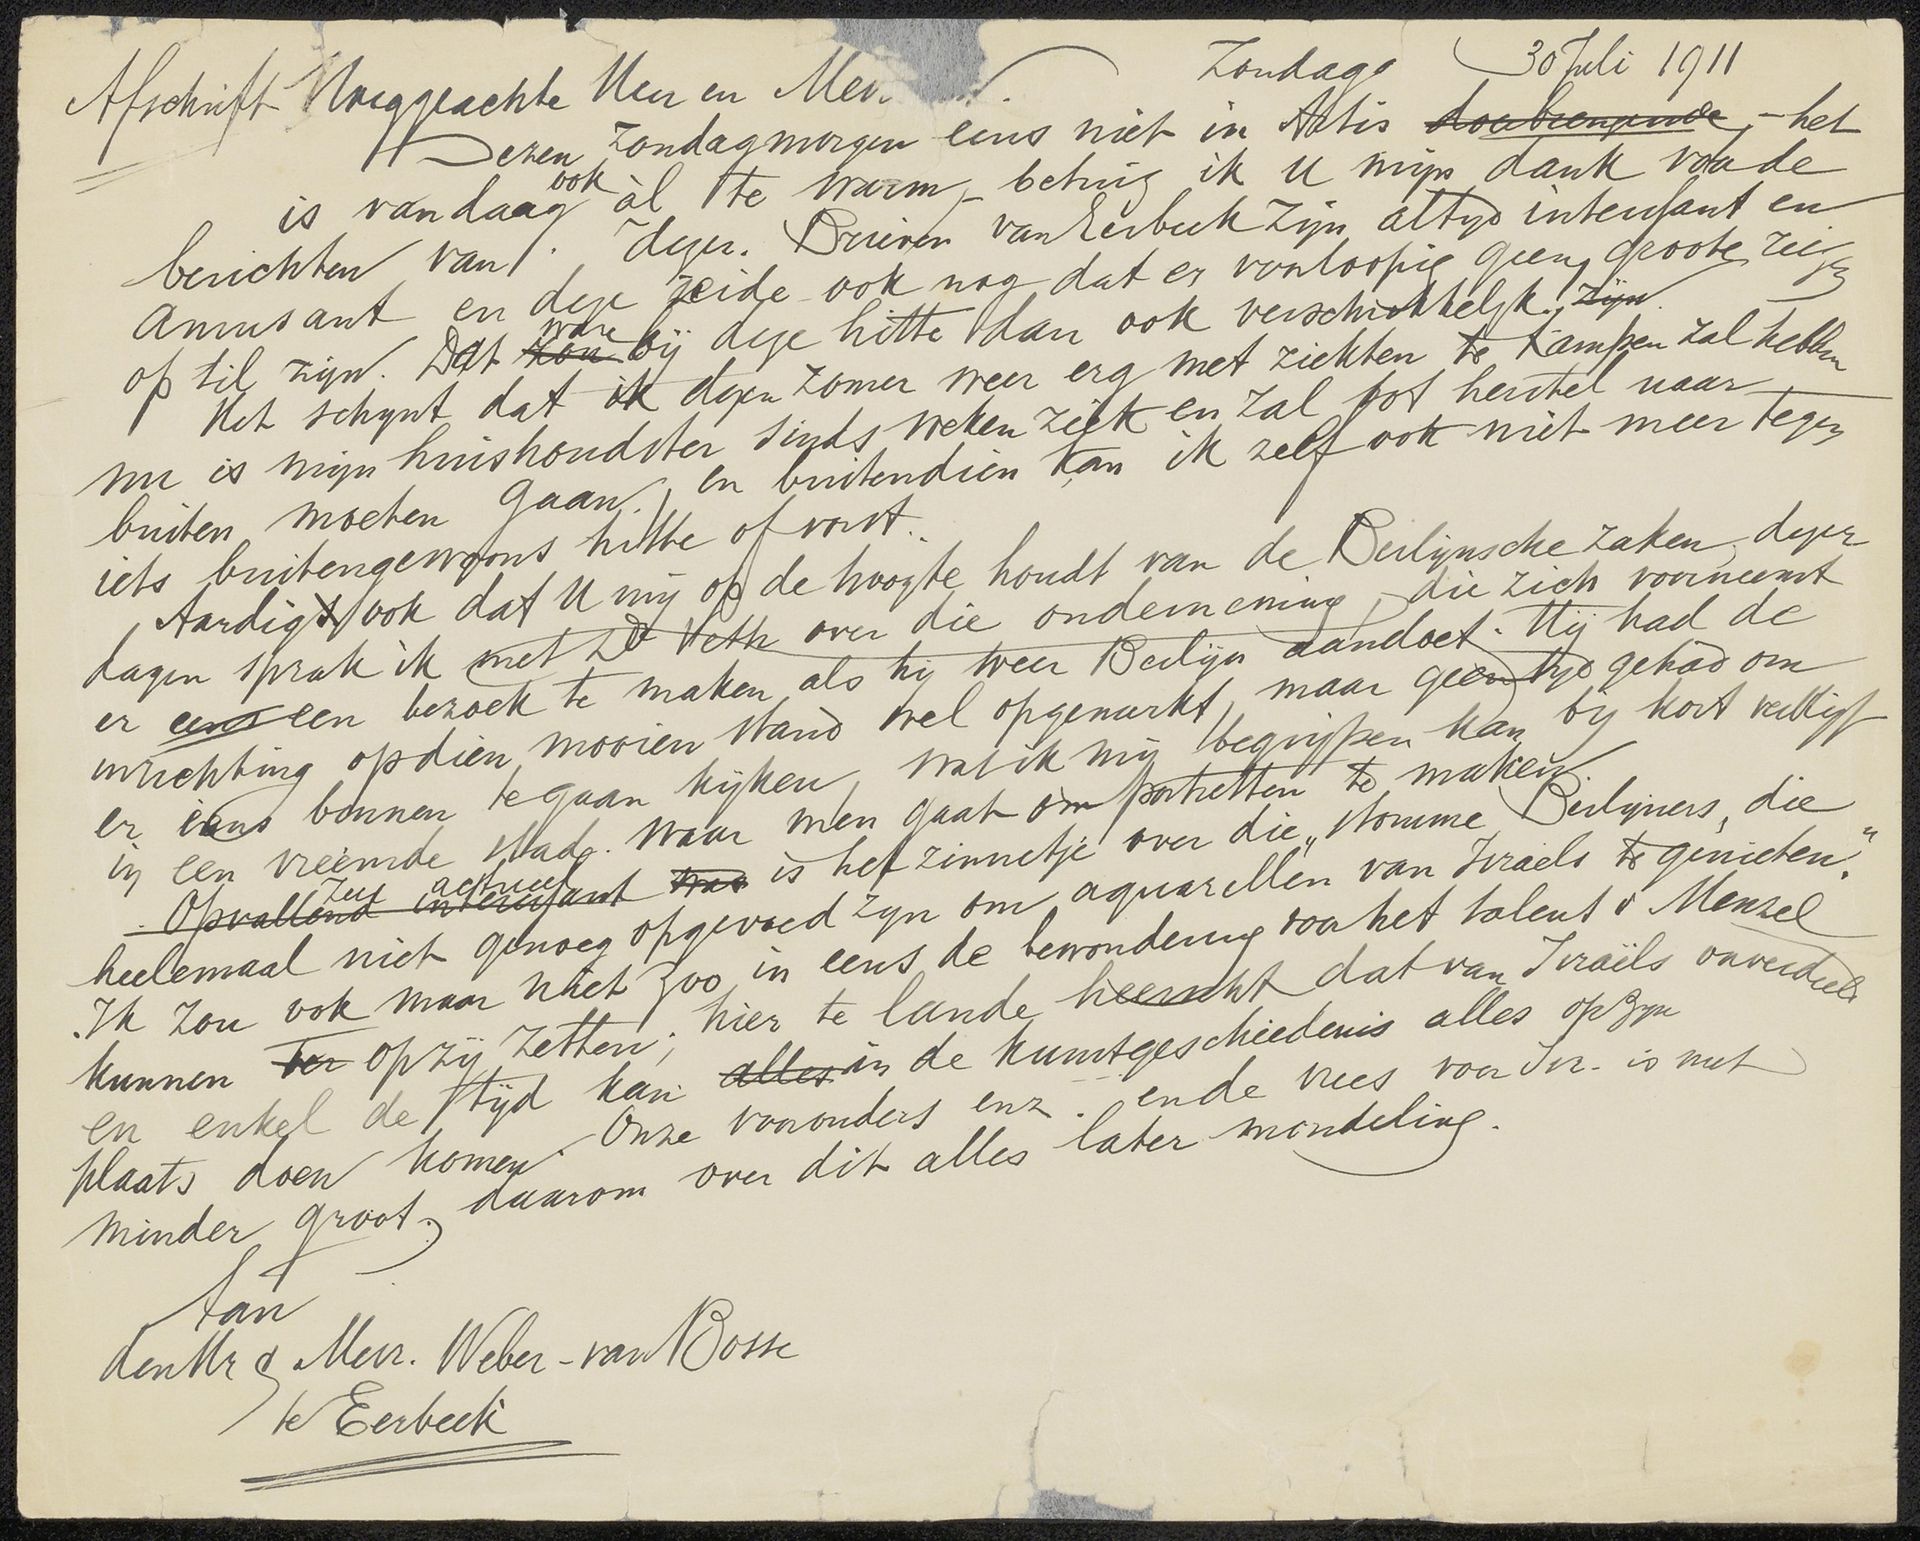 Afschrift Hooggeachte Heer en Mevr. Zondag 30 Juli 1911
Dezen Zondagmorgen eens niet in Artis doorbrengende, – het
is vandaag ook àl te warm, – betuig ik U mijn dank voor de
berichten van dezer. Brieven van Eerbeek zijn altijd interessant en
amusant en deze zeide ook nog dat er voorloopig geen groote
op til zijn. Dat zou ware bij deze hitte dan ook verschrikkelijk. zijn.
Het schynt dat ik dezen zomer weer erg met ziekten te kampen zal hebben
nu is mijn huishoudster sinds weken ziek en zal tot herstel naar
buiten moeten gaan, en buitendien kan ik zelf ook niet meer tegen
iets buitengewoons hitte of vorst.
Aardig ook dat U mij op de hoogte houdt van de Berlijnsche zaken, dezer
dagen sprak ik met Dr Veth over die onderneming, die zich voorneemt
er eens een bezoek te maken als hij weer Berlijn aandoet. Hij had de
inrichting op dien mooien stand wel opgemerkt, maar geen tijd gehad om
er eens binnen te gaan kijken, wat ik mij begrijpen kan bij kort verblijf
in een vreemde stad. waar men gaat om portretten te maken.
Opvallend interessant Zeer actueel was is het zinnetje over die „stomme Berlijners, die
heelemaal niet genoeg opgevoed zijn om aquarellen van Israels te genieten."
Ik zou ook maar niet zoo in eens de bewondering voor het talent v Menzel
kunnen ter opzij zetten; hier te lande heerscht dat van Israëls onverdeeld
en enkel de tijd kan alles in de kunstgeschiedenis alles op zijn
plaats doen komen. Onze voorouders enz. en de vrees voor Isr. is met
minder groot; daarom over dit alles later mondeling.
Aan
den Hr & Mevr. Weber – van Bosse
te Eerbeek